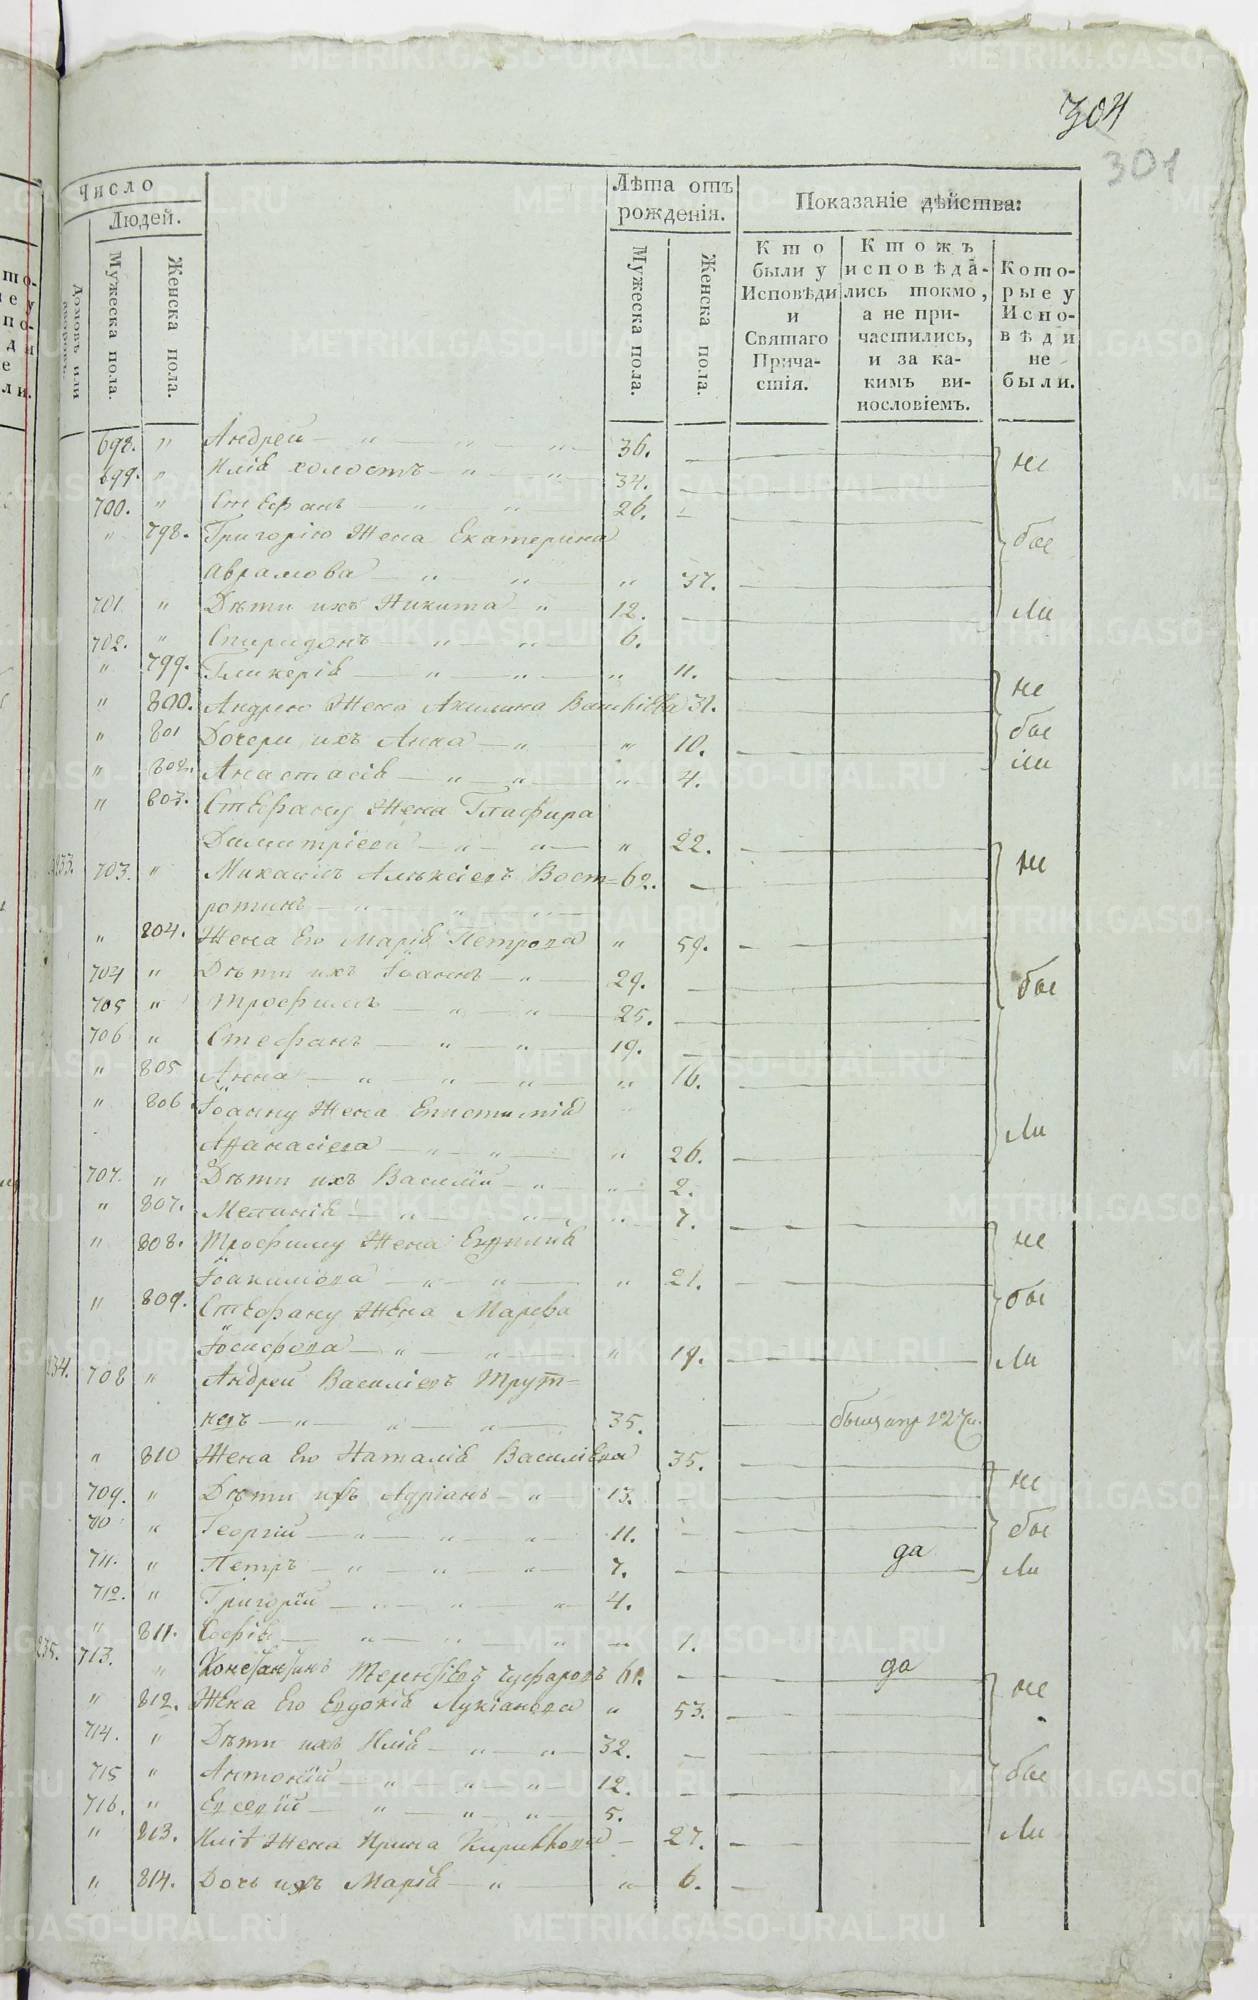 304
301
Число
Людей.
Домовъ или
Мужеска пола.
Женска пола.
Лѣта отъ
рожденія.
Мужеска пола.
Женска пола.
Показаніе дѣйства:
Кто
были у
Исповѣди
и
Святаго
Прича-
стія.
Ктожъ
исповѣда-
лись токмо,
а не при-
частились,
и за ка-
кимъ ви-
нословіемъ.
Кото-
рые у
Испо-
вѣди
не
были.
698. " Андрей — " — " — " 36. — не
699. " Илія холостъ — " — " 34. —
700. " Стефанъ — " — " 26. —
" 798. Григорію Жена Екатерина бы
Аврамова — " — " — " 37. —
701. " Дѣти ихъ Никита — " — 12. — ли
702. " Спиридонъ — " — " — 6. —
" 799. Гликерія — " — " — " 11. —
" 800. Андрею Жена Акилина 31. — не
" 801 Дочери ихъ Анна — " — " 10. — бы
" 802. Анастасія — " — " — " 4. — ли
" 803. Стефану Жена Глафира
Димитріева — " — " — " 22. —
233. 703. " Алексіевъ Вост= 62. — не
ротинъ — " — " — " —
" 804. Жена Его Марія Петрова " 59. —
704 " Дѣти ихъ Іоаннъ — " — 29. — бы
705 " Трофимъ — " — " — 25. —
706 " Стефанъ — " — " — 19. —
" 805 Анна — " — " — " — " 16. —
" 806 Іоанну Жена Епистимія
Афанасіева — " — " — " 26. — ли
707. " Дѣти ихъ Василій — " — " — 2.
" 807. Меланія — " — " — " 7. —
" 808. Трофиму Жена не
Іоакимова — " — " — " 21. —
" 809. Стефану Жена Марѳа бы
Іосифова — " — " — " 19. — ли
234. 708 " Андрей Василіевъ Трут=
невъ — " — " — " — 35. —
" 810 Жена Его Наталія Василіева 35. —
709. " Дѣти ихъ Адріанъ — " — 13. — не
710 " Георгій — " — " — " — 11. — бы
711. " Петръ — " — " — " — 7. — да ли
712. " Григорій — " — " — " 4.
" 811. Софія — " — " — " — " 1.
235. 713. " Константинъ Терентіевъ 61. — да
" 812. Жена Его Евдокія Лукіанова " 53. — не
714. " Дѣти ихъ Илія — " — " — 32. —
715 " Антоній — " — " — " — 12. — бы
716. " Евсевій — " — " — " — 5.
" 813. Иліѣ Жена Ирина — 27. — ли
" 814. Дочь ихъ Марія — " — " 6. —